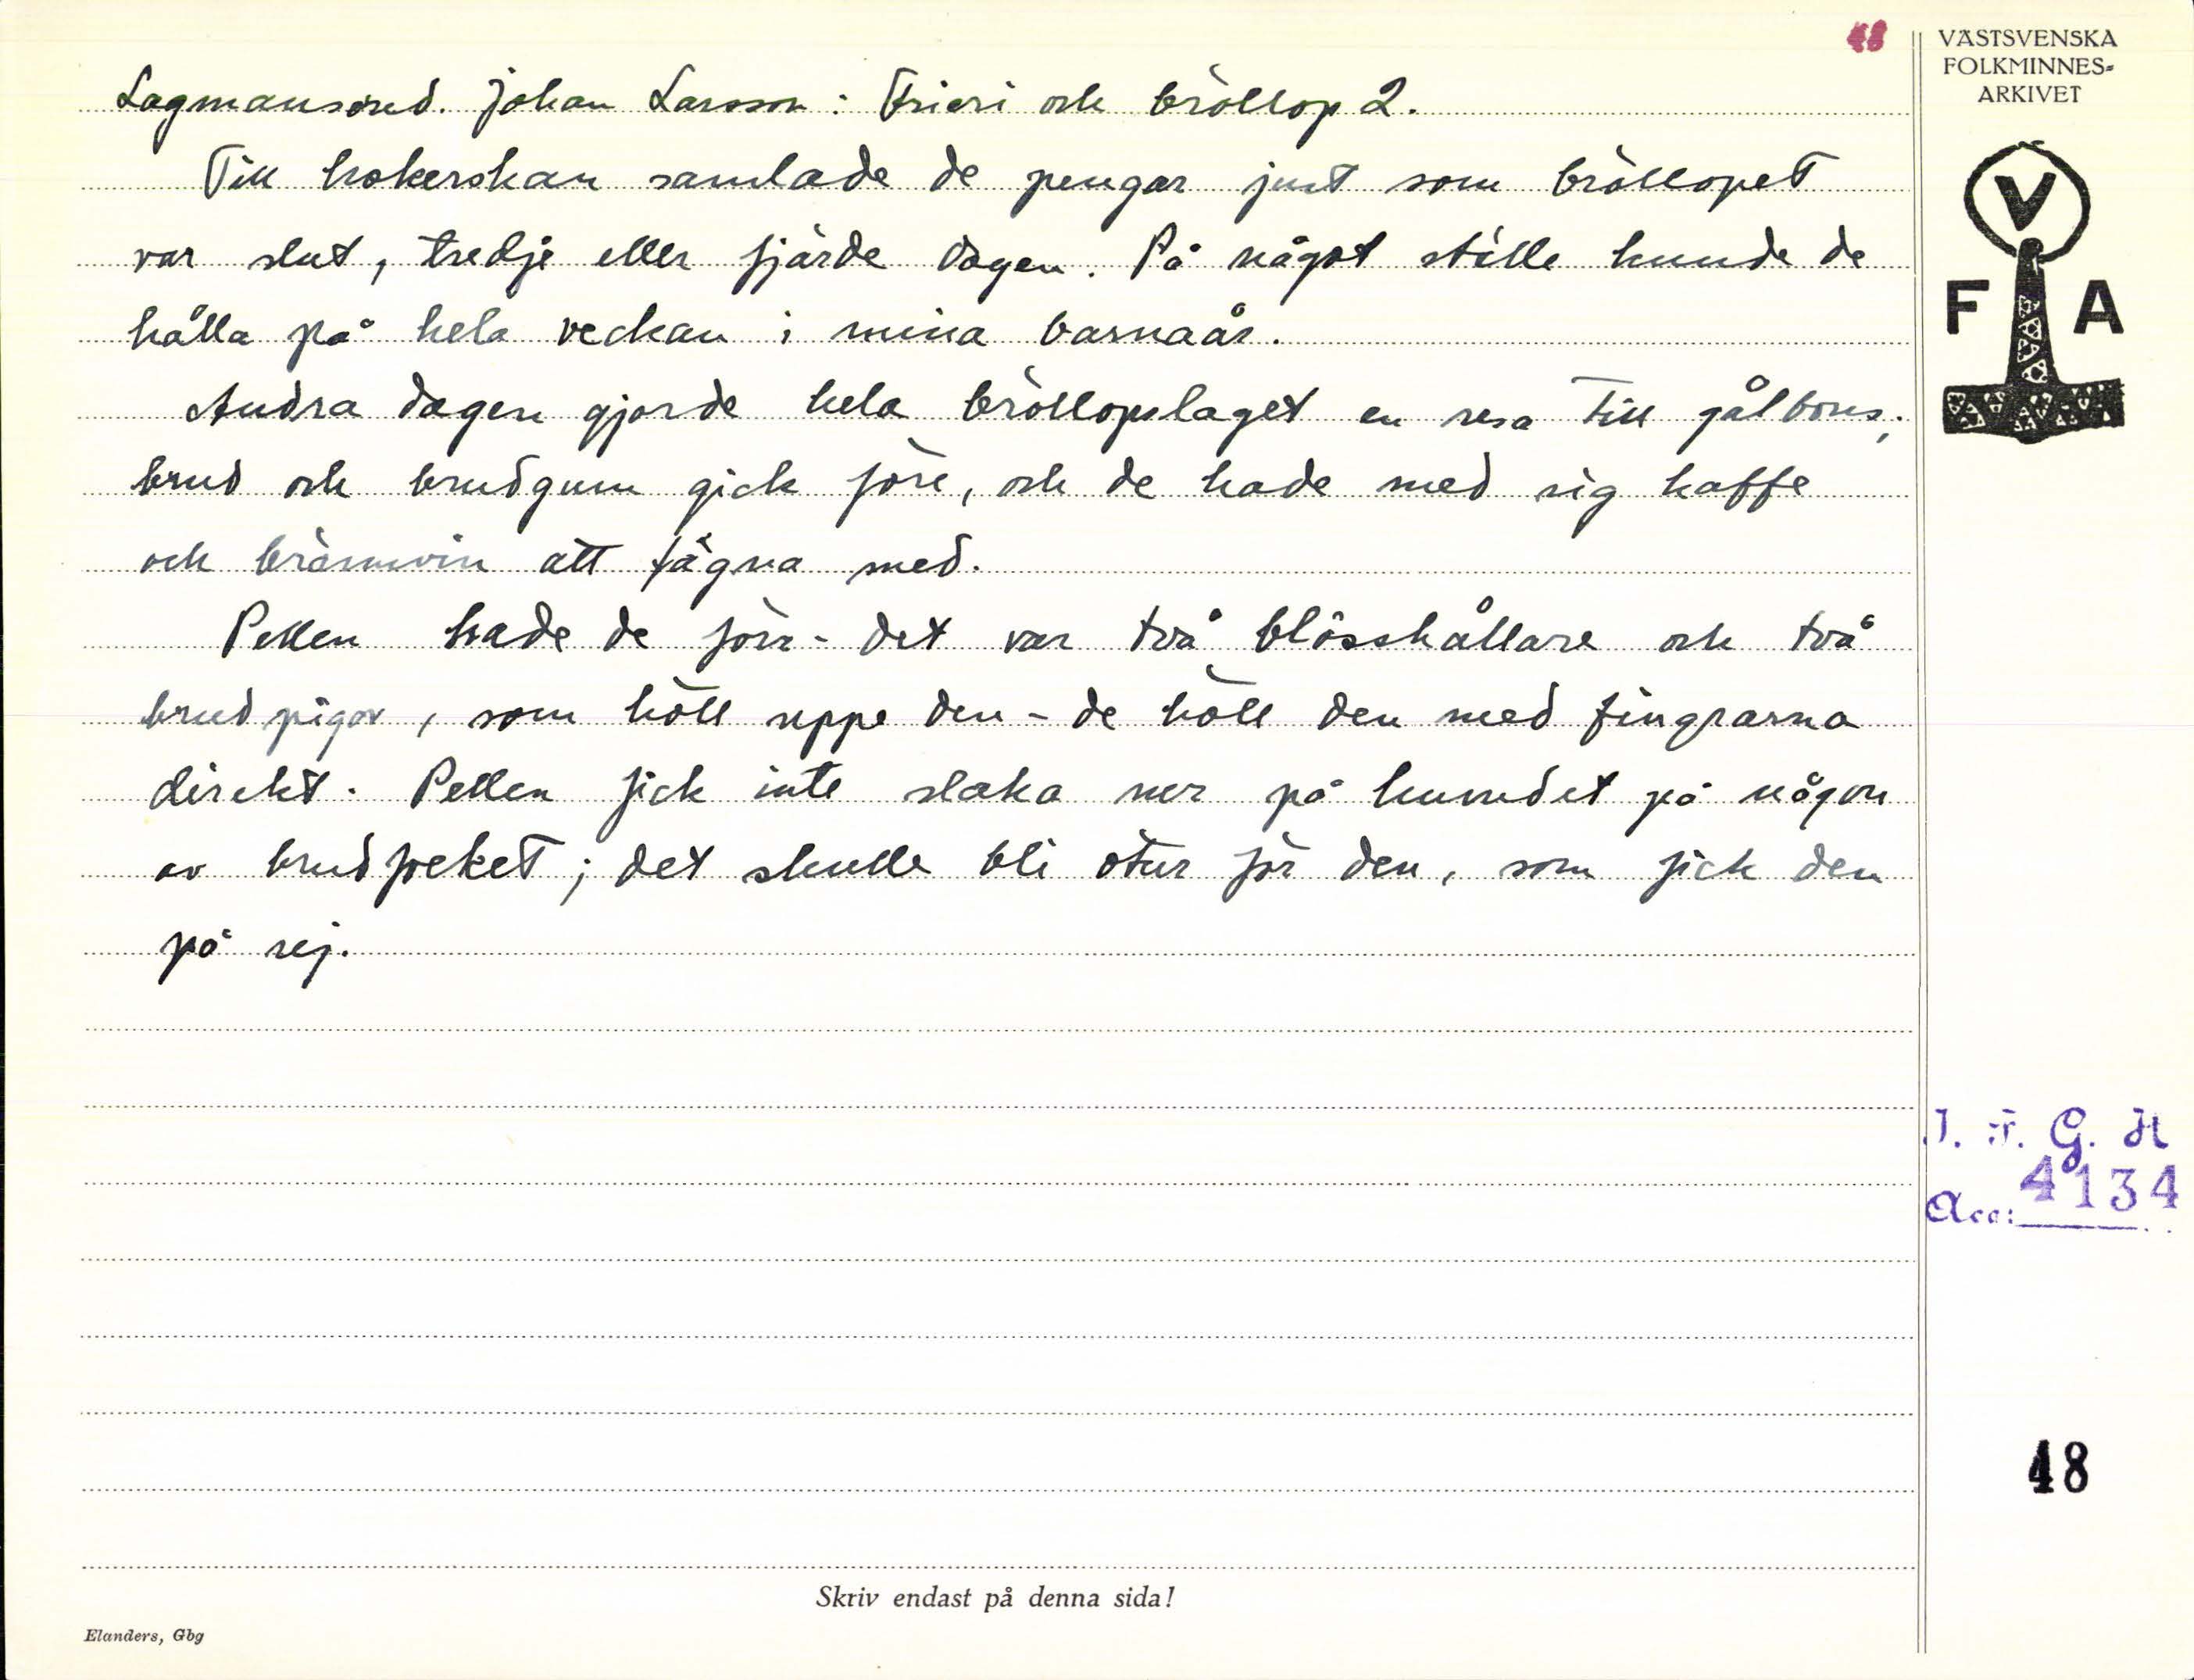 48
VÄSTSVENSKA
FOLKMINNES-
ARKIVET
Lagmansered. Johan Larsson: Frieri och bröllop 2.
Till kokerskan samlade de pengar just som bröllopet
var slut, tredje eller fjärde dagen. På något ställe kunde de
hålla på hela veckan i mina barnaår.
Andra dagen gjorde hela bröllopslaget en resa till gålbons;
brud och brudgum gick före, och de hade med sig kaffe
och brännvin att fägna med.
Pellen hade de förr - det var två blosshållare och två
brudpigor, som höll uppe den - de höll den med fingrarna
direkt. Pellen fick inte slaka ner på huvudet på någon
av brudfolket; det skulle bli otur för den, som fick den
på sej.
V
F A
I. F. G. H
Acc: 4134
48
Skriv endast på denna sida!
Elanders, Gbg